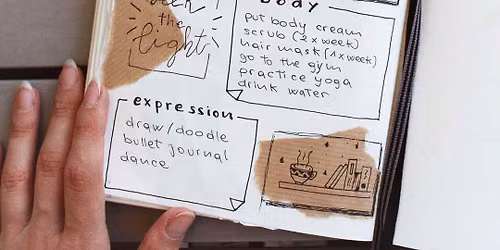 the
light
body
put body cream
scrub (2 x week)
hair mask (1 x week)
go to the gym
practice yoga
drink water
expression
draw/doodle
bullet journal
dance